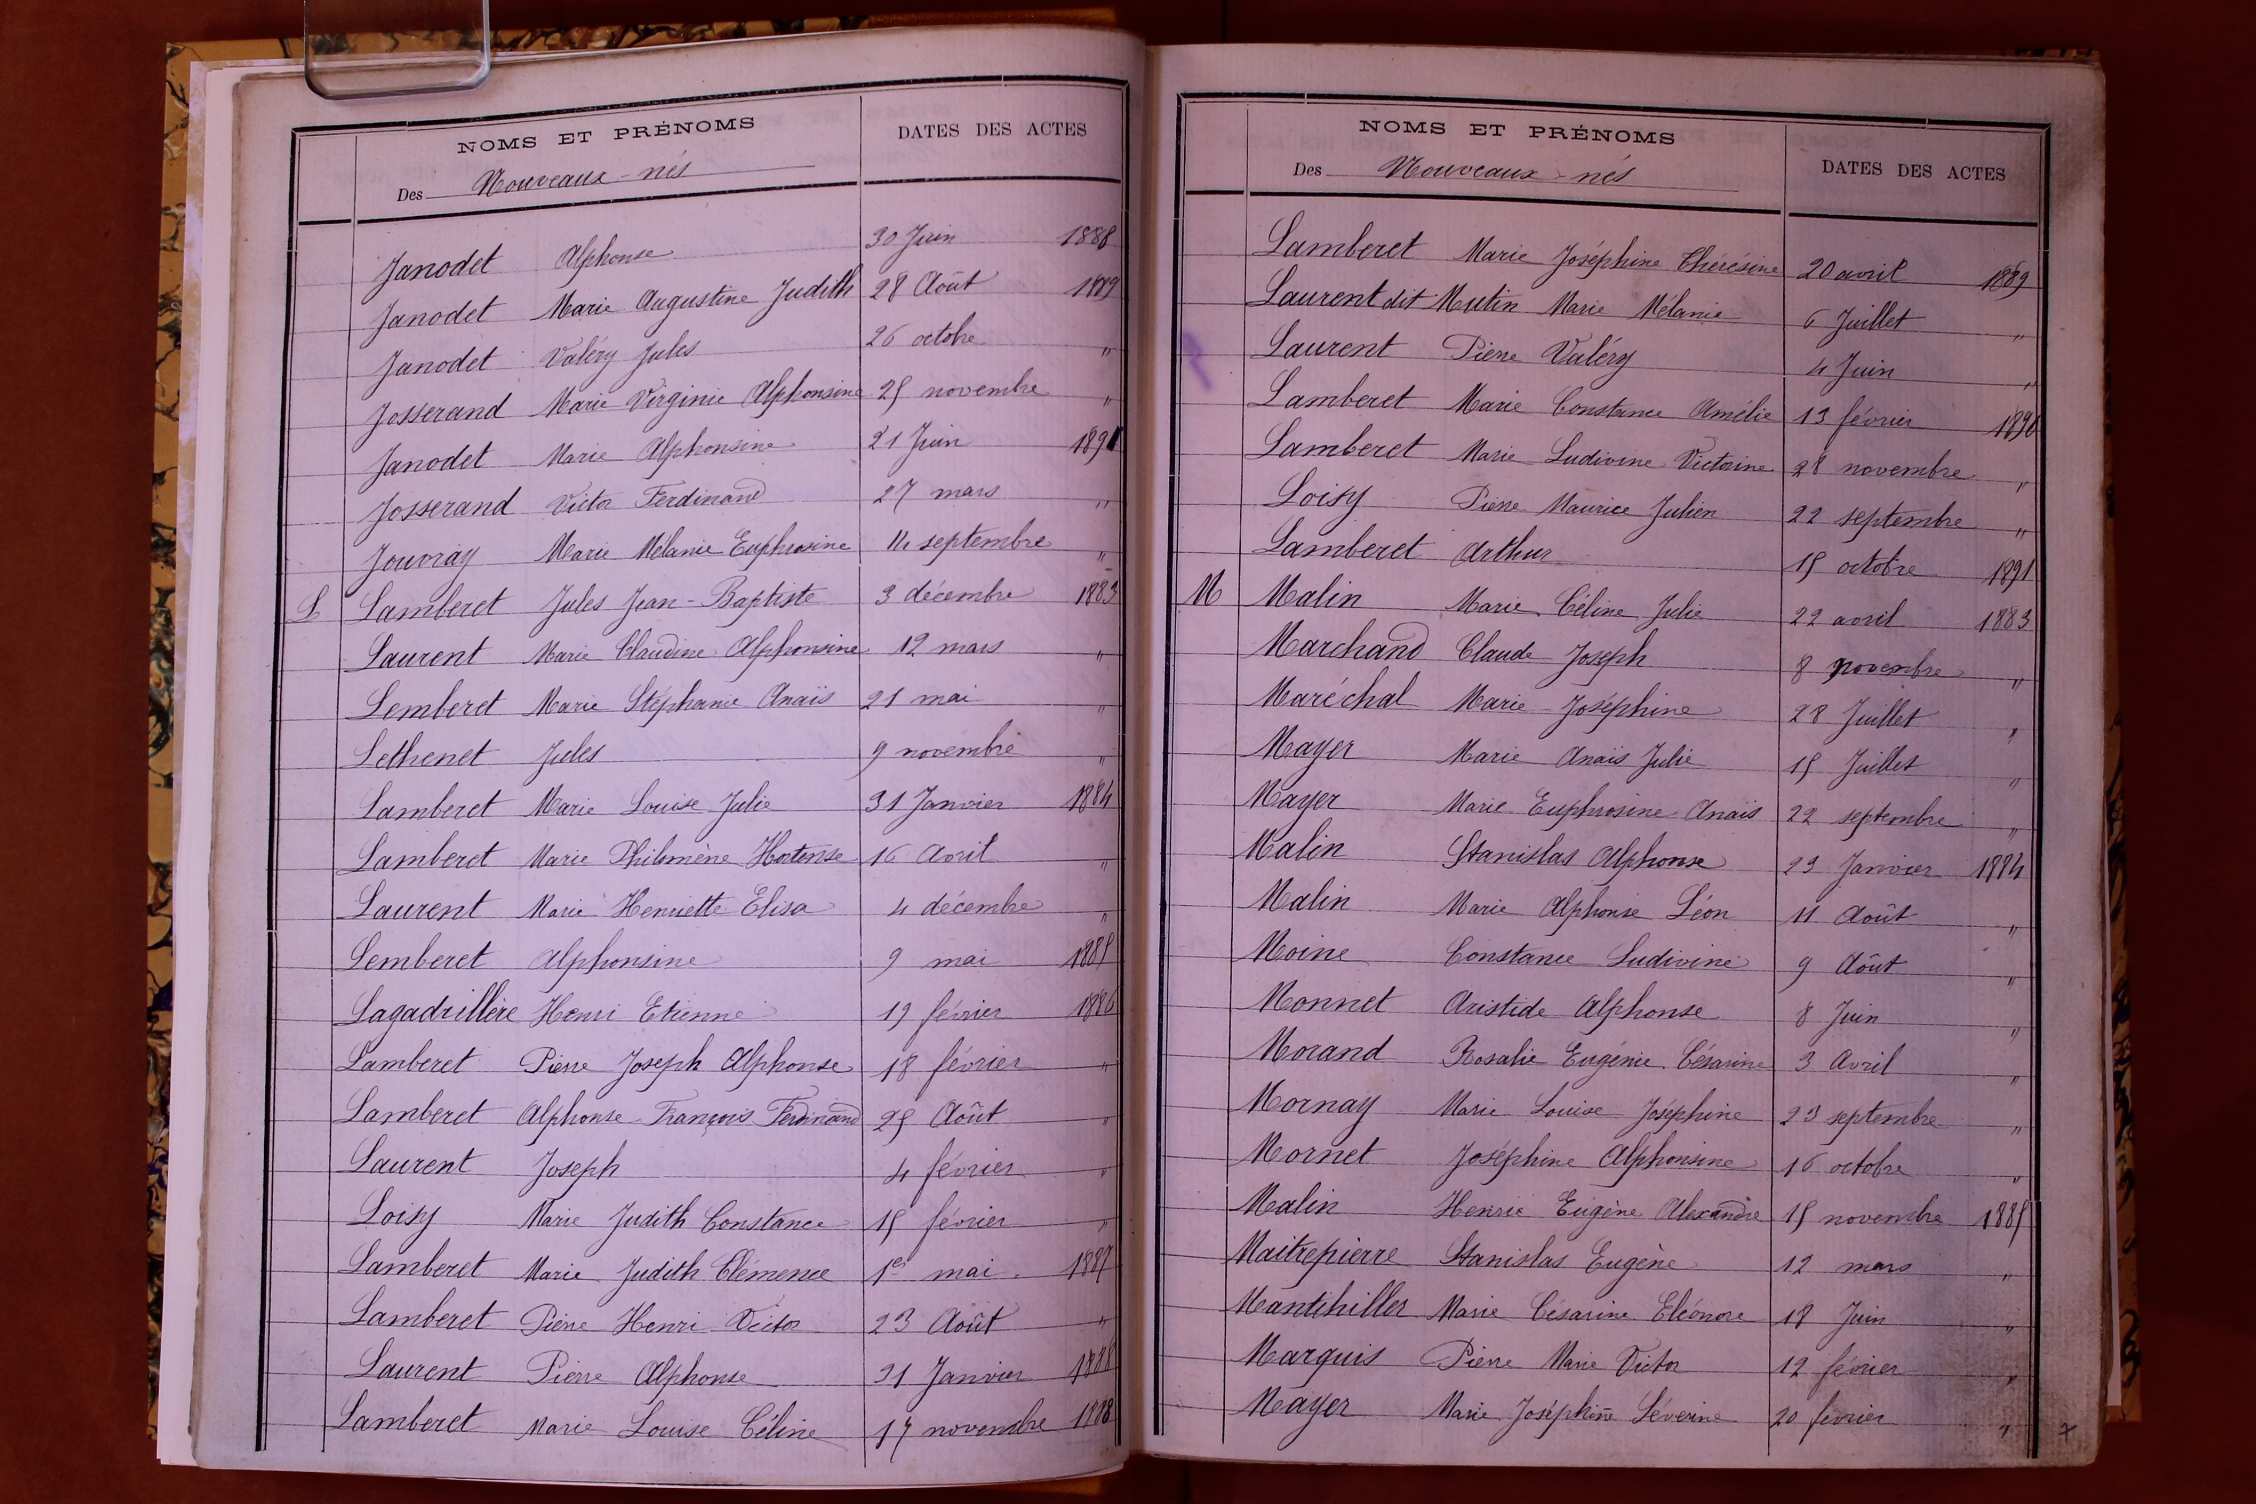 NOMS ET PRÉNOMS DATES DES ACTES
Des Nouveaux-nés
Janodet Alphonse 30 Juin 1888
Janodet Marie Augustine Judith 28 Août 1889
Janodet Valéry Jules 26 octobre "
Josserand Marie Virginie Alphonsine 25 novembre "
Janodet Marie Alphonsine 21 Juin 1891
Josserand Victor Ferdinand 27 mars "
Jouvray Marie Mélanie Euphrosine 14 septembre "
L Lamberet Jules Jean-Baptiste 3 décembre 1883
Laurent Marie Claudine Alphonsine 12 mars "
Lemberet Marie Stéphanie Anaïs 21 mai "
Lethenet Jules 9 novembre "
Lamberet Marie Louise Julie 31 Janvier 1884
Lamberet Marie Philomène Hortense 16 Avril "
Laurent Marie Henriette Elisa 4 décembre "
Lemberet Alphonsine 9 mai 1885
Lagadrillère Henri Etienne 19 février 1886
Lamberet Pierre Joseph Alphonse 18 février "
Lamberet Alphonse François Ferdinand 25 Août "
Laurent Joseph 4 février "
Loisy Marie Judith Constance 15 février "
Lamberet Marie Judith Clémence 1er mai 1887
Lamberet Pierre Henri Victor 23 Août "
Laurent Pierre Alphonse 31 Janvier 1888
Lamberet Marie Louise Céline 17 novembre 1888
NOMS ET PRÉNOMS DATES DES ACTES
Des Nouveaux-nés
Lamberet Marie Joséphine Thérésine 20 avril 1889
Laurent dit Mutin Marie Mélanie 6 Juillet "
Laurent Pierre Valéry 4 Juin "
Lamberet Marie Constance Amélie 13 février 1890
Lamberet Marie Ludivine Victorine 28 novembre "
Loisy Pierre Maurice Julien 22 septembre "
Lamberet Arthur 15 octobre 1891
M Malin Marie Céline Julie 22 avril 1883
Marchand Claude Joseph 8 novembre "
Maréchal Marie Joséphine 28 Juillet "
Mayer Marie Anaïs Julie 15 Juillet "
Mayer Marie Euphrosine Anaïs 22 septembre "
Malin Stanislas Alphonse 23 Janvier 1884
Malin Marie Alphonse Léon 11 Août "
Moine Constance Ludivine 9 Août "
Monnet Aristide Alphonse 8 Juin "
Morand Rosalie Eugénie Césarine 3 Avril "
Mornay Marie Louise Joséphine 23 septembre "
Mornet Joséphine Alphonsine 16 octobre "
Malin Henrie Eugène Alexandre 15 novembre 1885
Maitrepierre Stanislas Eugène 12 mars "
Mantihiller Marie Césarine Eléonore 18 Juin "
Marquis Pierre Marie Victor 12 février "
Mayer Marie Joséphine Séverine 20 février "